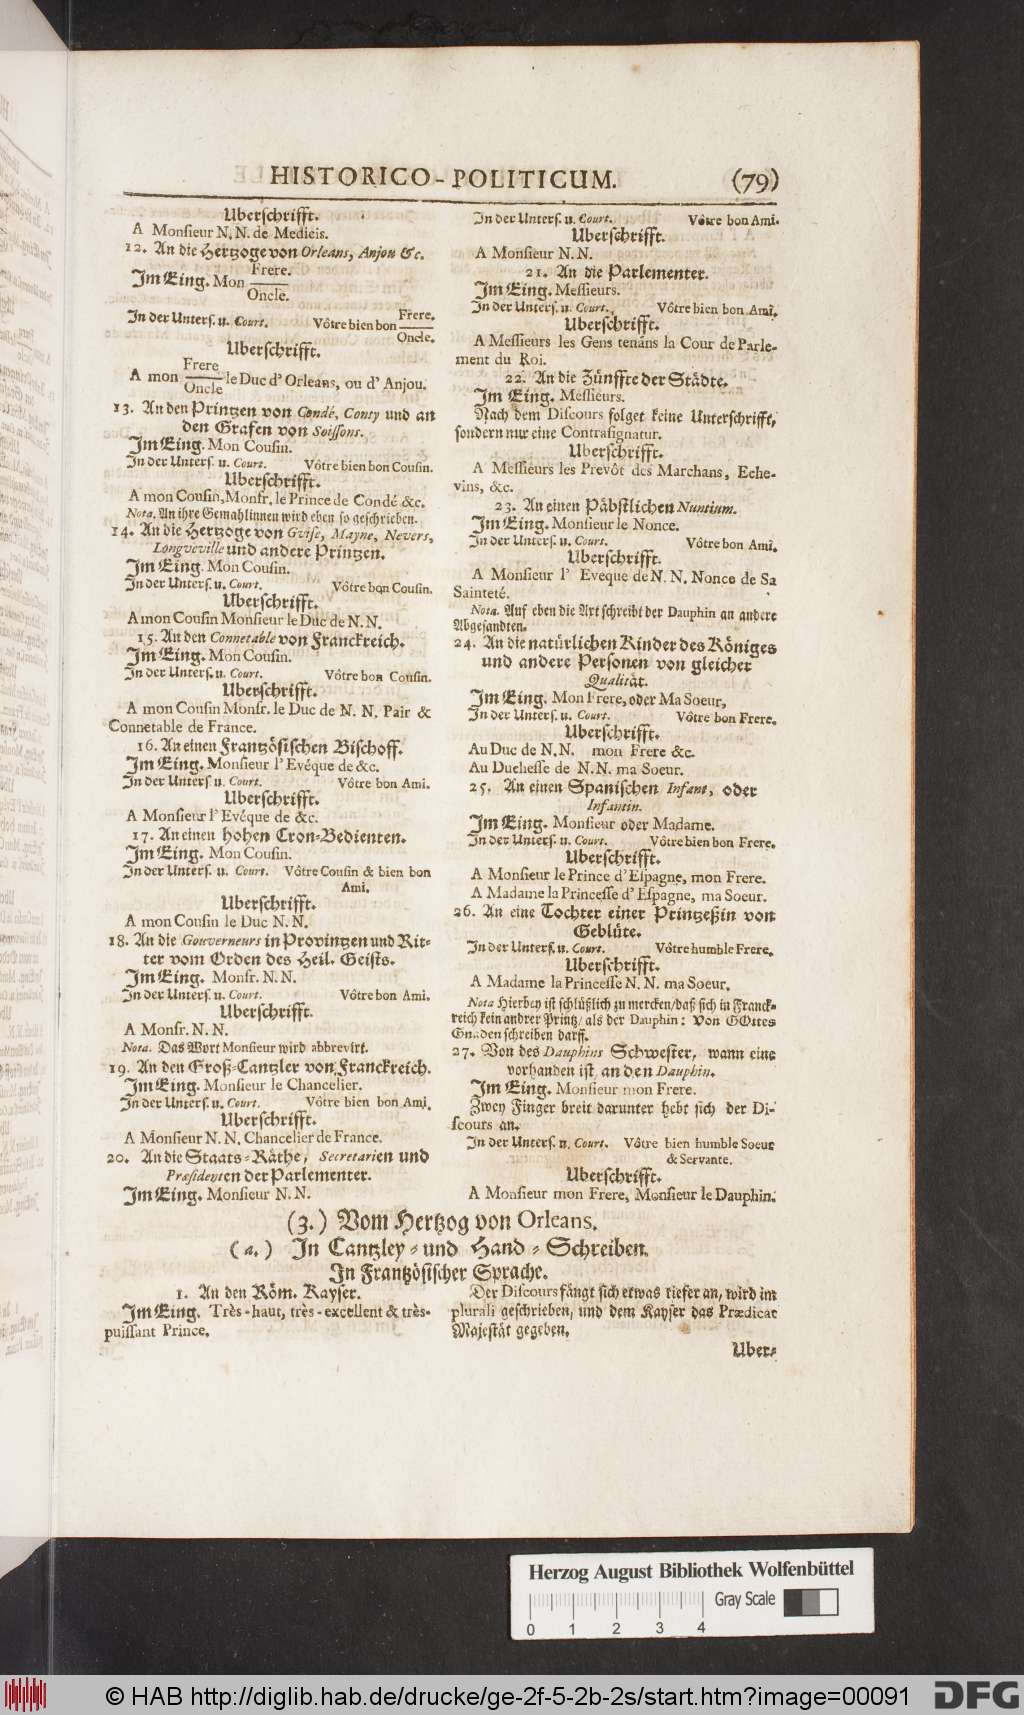 HISTORICO-POLITICUM. (79)
Uberschrifft.
A Monsieur N. N. de Medicis.
12. An die Hertzoge von Orleans, Anjou &c.
Frere.
Im Eing. Mon
Oncle.
Frere.
In der Unters. u. Court. Vôtre bien bon
Oncle.
Uberschrifft.
Frere
A mon le Duc d' Orleans, ou d' Anjou.
Oncle
13. An den Printzen von Condé, Conty und an
den Grafen von Soissons.
Im Eing. Mon Cousin.
In der Unters. u. Court. Vôtre bien bon Cousin.
Uberschrifft.
A mon Cousin, Monsr. le Prince de Condé &c.
Nota. An ihre Gemahlinnen wird eben so geschrieben.
14. An die Hertzoge von Gvise, Mayne, Nevers,
Longveville und andere Printzen.
Im Eing. Mon Cousin.
In der Unters. u. Court. Vôtre bon Cousin.
Uberschrifft.
A mon Cousin Monsieur le Duc de N. N.
15. An den Connetable von Franckreich.
Im Eing. Mon Cousin.
In der Unters. u. Court. Vôtre bon Cousin.
Uberschrifft.
A mon Cousin Monsr. le Duc de N. N. Pair &
Connetable de France.
16. An einen Frantzösischen Bischoff.
Im Eing. Monsieur l' Evéque de &c.
In der Unters. u. Court. Vôtre bon Ami.
Uberschrifft.
A Monsieur l' Evéque de &c.
17. An einen hohen Cron-Bedienten.
Im Eing. Mon Cousin.
In der Unters. u. Court. Vôtre Cousin & bien bon
Ami.
Uberschrifft.
A mon Cousin le Duc N. N.
18. An die Gouverneurs in Provintzen und Rit-
ter vom Orden des Heil. Geists.
Im Eing. Monsr. N. N.
In der Unters. u. Court. Vôtre bon Ami.
Uberschrifft.
A Monsr. N. N.
Nota. Das Wort Monsieur wird abbrevirt.
19. An den Groß-Cantzler von Franckreich.
Im Eing. Monsieur le Chancelier.
In der Unters. u. Court. Vôtre bien bon Ami.
Uberschrifft.
A Monsieur N. N. Chancelier de France.
20. An die Staats-Räthe, Secretarien und
Præsidenten der Parlementer.
Im Eing. Monsieur N. N.
In der Unters. u. Court. Vôtre bon Ami.
Uberschrifft.
A Monsieur N. N.
21. An die Parlementer.
Im Eing. Messieurs.
In der Unters. u. Court. Vôtre bien bon Ami.
Uberschrifft.
A Messieurs les Gens tenans la Cour de Parle-
ment du Roi.
22. An die Zünffte der Städte.
Im Eing. Messieurs.
Nach dem Discours folget keine Unterschrifft,
sondern nur eine Contrasignatur.
Uberschrifft.
A Messieurs les Prevôt des Marchans, Eche-
vins, &c.
23. An einen Päbstlichen Nuntium.
Im Eing. Monsieur le Nonce.
In der Unters. u. Court. Vôtre bon Ami.
Uberschrifft.
A Monsieur l' Eveque de N. N. Nonce de Sa
Sainteté.
Nota. Auf eben die Art schreibt der Dauphin an andere
Abgesandten.
24. An die natürlichen Kinder des Königes
und andere Personen von gleicher
Qualität.
Im Eing. Mon Frere, oder Ma Soeur,
In der Unters. u. Court. Vôtre bon Frere.
Uberschrifft.
Au Duc de N. N. mon Frere &c.
Au Duchesse de N. N. ma Soeur.
25. An einen Spanischen Infant, oder
Infantin.
Im Eing. Monsieur oder Madame.
In der Unters. u. Court. Vôtre bien bon Frere.
Uberschrifft.
A Monsieur le Prince d'Espagne, mon Frere.
A Madame la Princesse d' Espagne, ma Soeur.
26. An eine Tochter einer Printzeßin von
Geblüte.
In der Unters. u. Court. Vôtre humble Frere.
Uberschrifft.
A Madame la Princesse N. N. ma Soeur.
Nota Hierbey ist schlüßlich zu mercken/ daß sich in Franck-
reich kein andrer Printz/ als der Dauphin: Von GOttes
Gnaden schreiben darff.
27. Von des Dauphins Schwester, wann eine
vorhanden ist, an den Dauphin.
Im Eing. Monsieur mon Frere.
Zwey Finger breit darunter hebt sich der Di-
scours an.
In der Unters. u. Court. Vôtre bien humble Soeur
& Servante.
Uberschrifft.
A Monsieur mon Frere, Monsieur le Dauphin.
(3.) Vom Hertzog von Orleans.
(a.) In Cantzley- und Hand-Schreiben.
In Frantzösischer Sprache.
1. An den Röm. Kayser.
Im Eing. Très-haut, très-excellent & très-
puissant Prince.
Der Discours fängt sich etwas tiefer an, wird im
plurali geschrieben, und dem Kayser das Prædicat
Majestät gegeben.
Uber-
Herzog August Bibliothek Wolfenbüttel
Gray Scale
0 1 2 3 4
© HAB http://diglib.hab.de/drucke/ge-2f-5-2b-2s/start.htm?image=00091 DFG